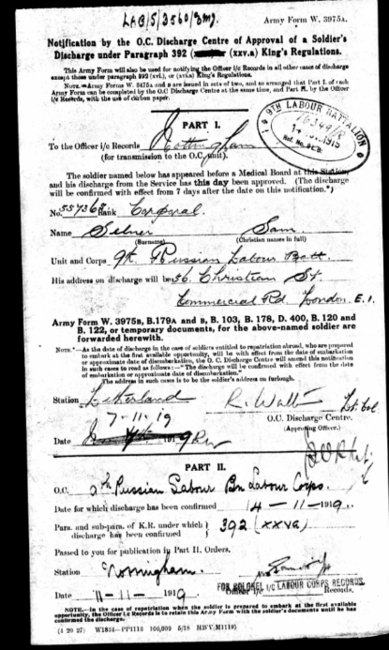 LAB/5/3560/
Army Form W. 3975A.
Notification by the O.C. Discharge Centre of Approval of a Soldier's
Discharge under Paragraph 392 (xxv.a) King's Regulations.
This Army Form will also be used for notifying the Officer i/c Records in all other cases of discharge
except those under paragraph 392 (xvi.), or (xvia.) King's Regulations.
NOTE.—Army Forms W. 3975A and B are issued in sets of two, and so arranged that Part I. of each
Army Form can be completed by the O.C. Discharge Centre at the same time, and Part II. by the Officer
i/c Records, with the use of carbon paper.
9TH LABOUR BATTALION
1919
PART I.
To the Officer i/c Records Nottingham
(for transmission to the O.C. unit).
The soldier named below has appeared before a Medical Board at this Station,
and his discharge from the Service has this day been approved. (The discharge
will be confirmed with effect from 7 days after the date on this notification.)
No. 557368 Rank Corporal
Name Selner Sam
(Surname) (Christian names in full)
Unit and Corps 9th Russian Labour Batt
His address on discharge will be 36, Christian St.
Commercial Rd London. E.1.
Army Form W. 3975B, B.179A and B, B. 103, B. 178, D. 400, B. 120 and
B. 122, or temporary documents, for the above-named soldier are
forwarded herewith.
NOTE.—As the date of discharge in the case of soldiers entitled to repatriation abroad, who are prepared
to embark at the first available opportunity, will be with effect from the date of embarkation
or approximate date of disembarkation, the O. C. Discharge Centre will amend this notification
in such cases to read as follows:—"The discharge will be confirmed with effect from the date
of embarkation or approximate date of disembarkation."
The address in such cases is to be the soldier's address on furlough.
Station Litherland R. Wall Lt. Col
7-11-19 O.C. Discharge Centre.
(Approving Officer.)
Date 1919
PART II.
O.C. 9th Russian Labour Bn Labour Corps.
Date for which discharge has been confirmed 14-11-1919.
Para. and sub-para. of K.R. under which
discharge has been confirmed } 392 (xxva)
Passed to you for publication in Part II. Orders.
Station Nottingham.
FOR COLONEL I/C LABOUR CORPS RECORDS
Officer i/c Records.
Date 11-11-1919
NOTE.—In the case of repatriation when the soldier is prepared to embark at the first available
opportunity, the Officer i/c Records is to retain this Army Form with the soldier's documents until he has
confirmed the discharge.